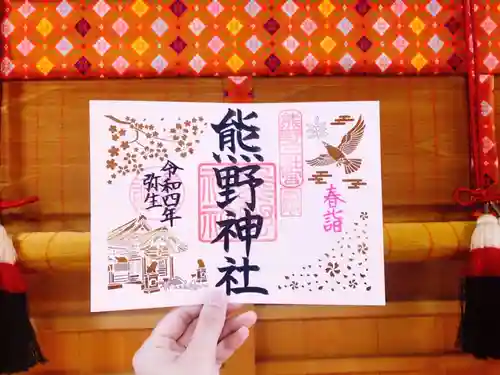 熊野神社
春詣
令和四年
弥生